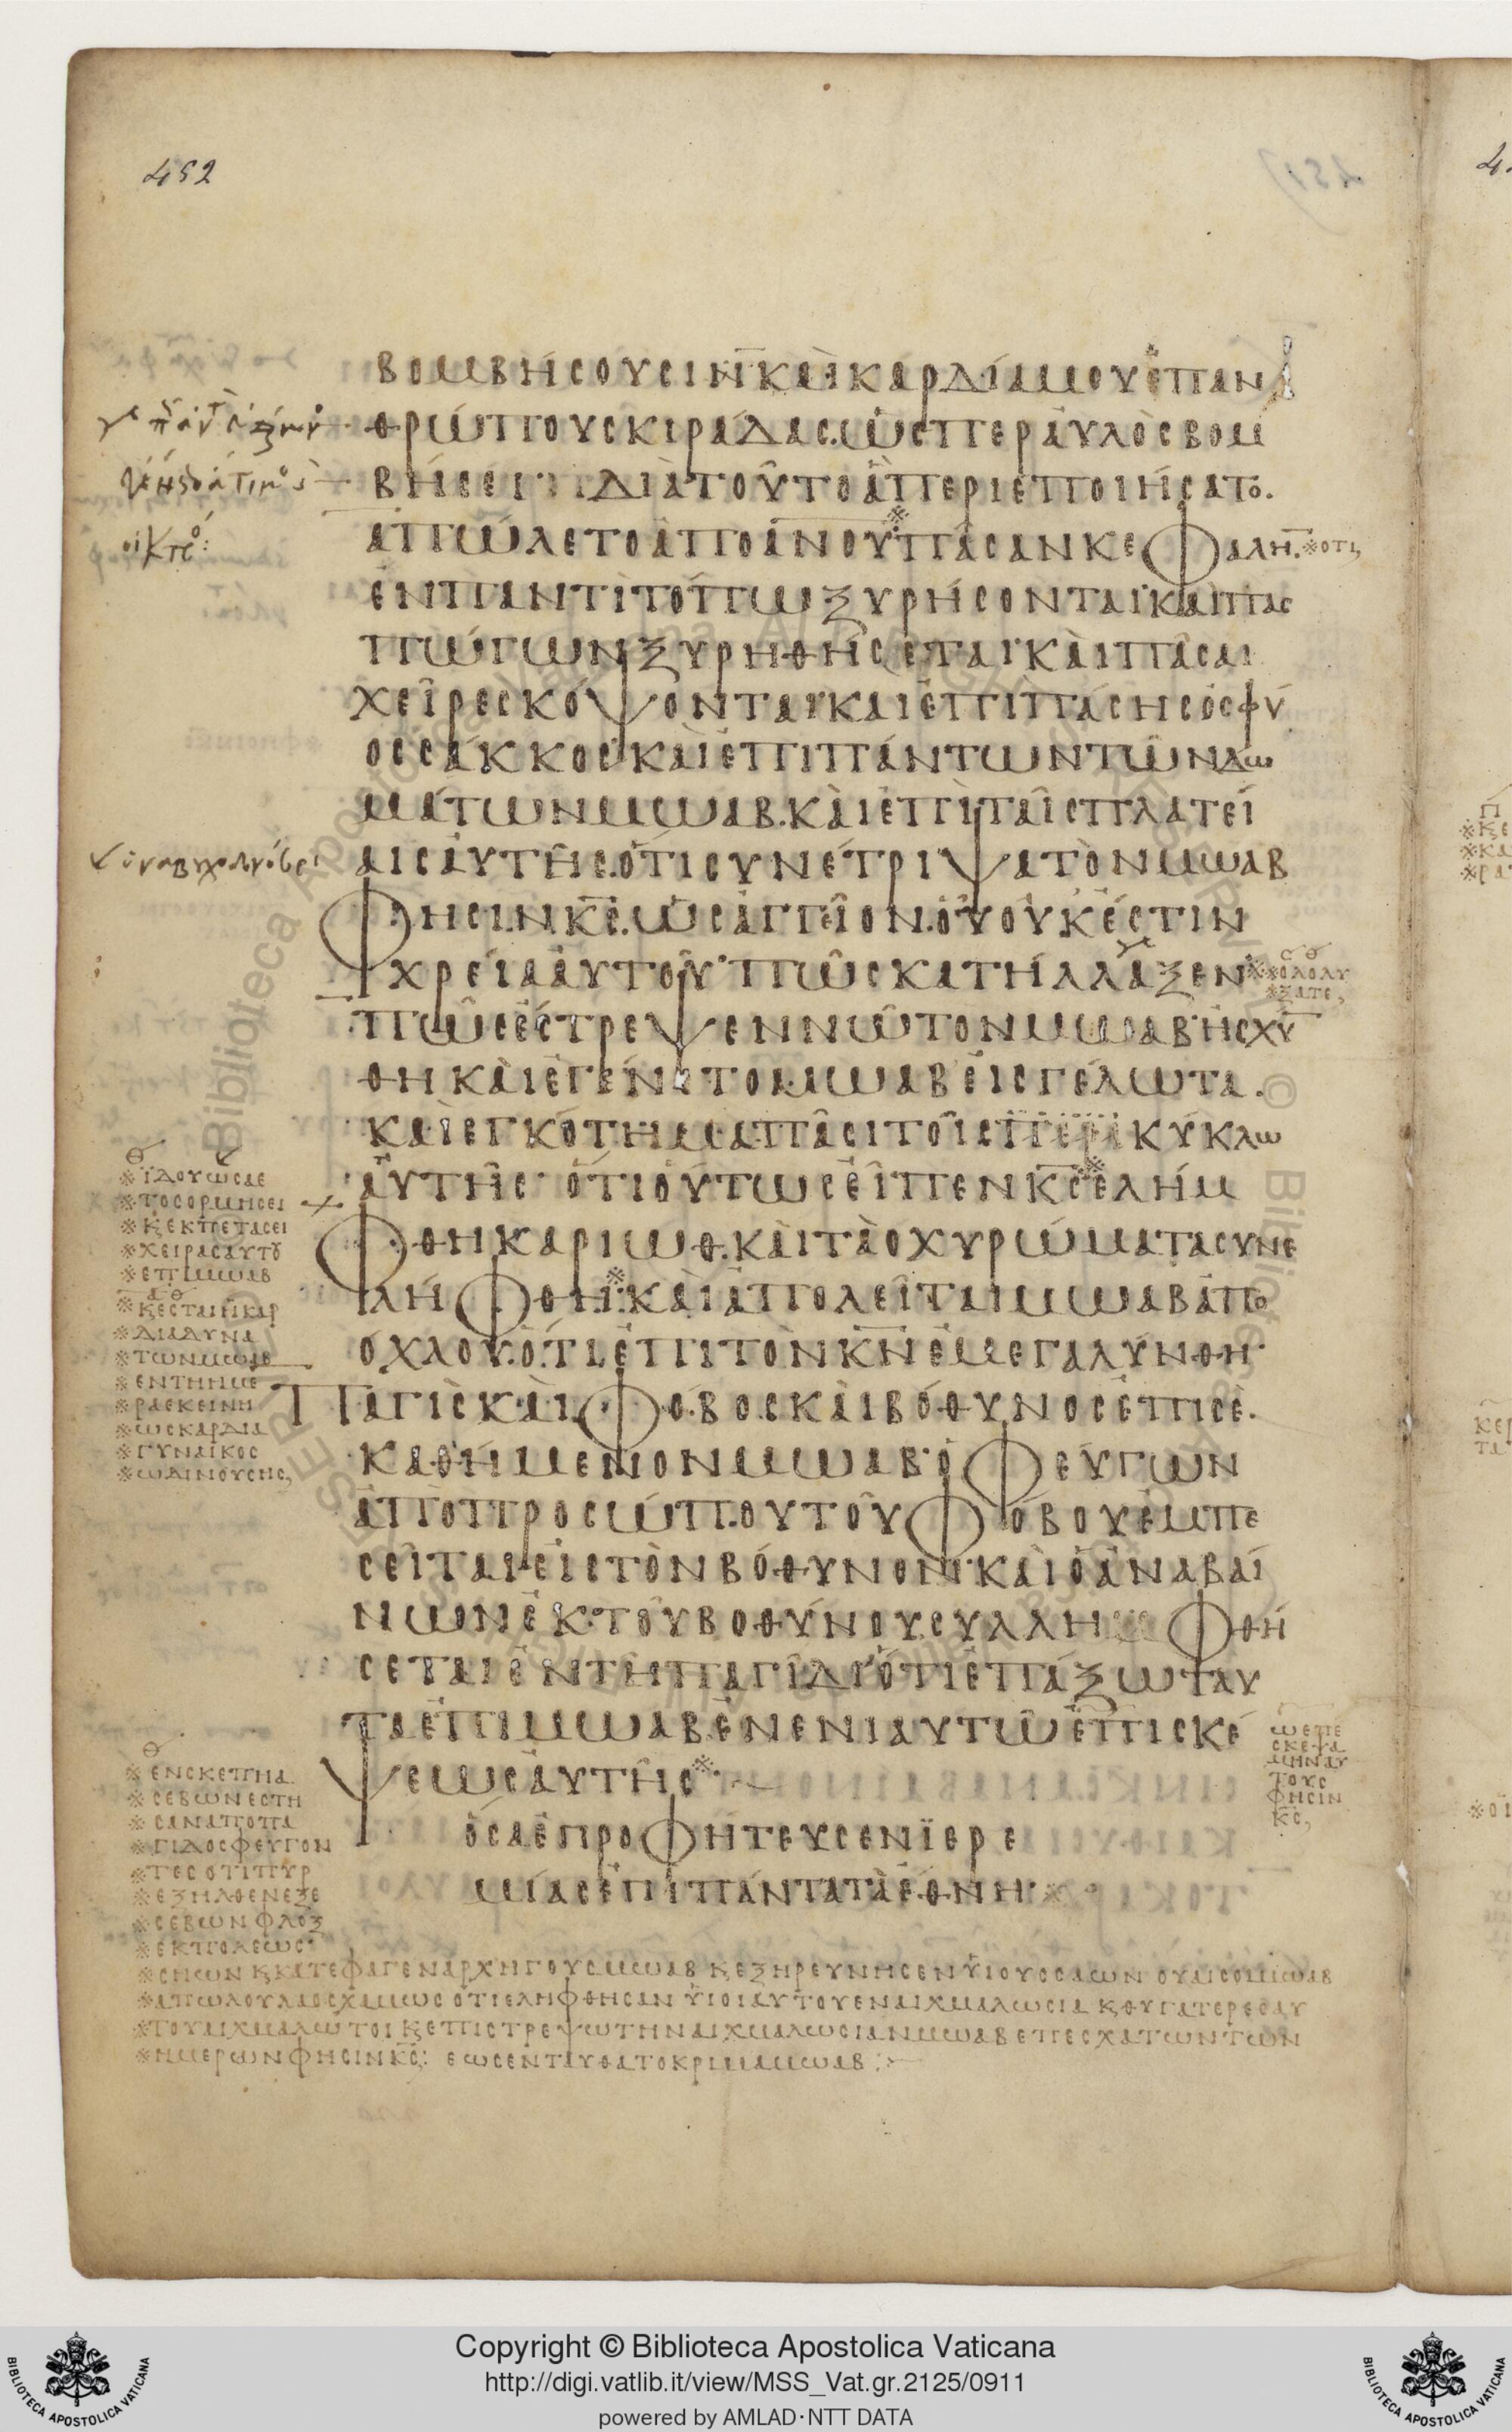 452
βομβήσουσιν· καὶ καρδία μου ἐπ᾽ ἀν
θρώπους κιράδας. ὥσπερ αὐλὸς βομ
βήσει· διὰ τοῦτο ἃ περιεποιήσατο.
ἀπώλετο ἀπὸ ἀνου· ※ πᾶσαν κεφαλη. ※ οτι
ἐν παντὶ τόπω ξυρήσονται· καὶ πας
πώγων ξυρηθήσεται· καὶ πᾶσαι
χεῖρες κόψονται· καὶ ἐπὶ πάσης ὀσφύ
ος σάκκος· καὶ ἐπὶ πάντων τῶν δω
μάτων μωαβ. καὶ ἐπὶ ταῖς πλατεί
αις αὐτῆς. ὅτι συνέτριψα τὸν μωαβ
φησιν κς. ὡς ἀγγεῖον. οὗ οὐκ ἔστιν
χρεία αὐτοῦ· πῶς κατήλλαξεν
※ ολολυ
※ ξατε,
πῶς ἔστρεψεν νῶτον μωαβ· ἠσχύ
θη καὶ ἐγένετο μωαβ εἰς γέλωτα.
καὶ ἐγκότημα πᾶσι τοῖς περὶ κύκλω
αὐτῆς· ὅτι οὕτως εἶπεν κς ※ ἐλήμ
φθη καριωθ. καὶ τὰ ὀχυρώματα συνε
λήφθη· ※ καὶ ἀπολεῖται μωαβ ἀπο
ὄχλου. ὅτι ἐπι τὸν κν ἐμεγαλύνθη·
παγὶς καὶ φόβος καὶ βόθυνος ἐπὶ σὲ.
καθήμενον μωαβ· ὁ φεύγων
ἀπὸ προσώπου τοῦ φόβου ἐμπε
σεῖται εἰς τὸν βόθυνον· καὶ ὁ ἀναβαί
νων ἐκ τοῦ βοθύνου συλληφθή
σεται ἐν τῆ παγίδι· ὅτι ἐπάξω ταυ
τα ἐπὶ μωαβ ἐν ἐνιαυτῶ ἐπισκέ
ψεως αὐτῆς ※
ωεπε
σκεψα
μην αυ
τους
φησιν
κς,
ὅσα ἐπροφήτευσεν ϊερε
μίας ἐπὶ πάντα τὰ ἔθνη·
※ ϊδου ως αε
※ τος ορμησει
※ κ εκπετασει
※ χειρας αυτου
※ επι μωαβ
※ κ εσται η καρ
※ δια δυνα
※ των μωαβ
※ εν τη ημε
※ ρα εκεινη
※ ως καρδια
※ γυναικος
※ ωδινουσης,
※ εν σκεπη α
※ σεβων εστη
※ σαν απο πα
※ γιδος φευγον
※ τες οτι πυρ
※ εξηλθεν εξ ε
※ σεβων φλοξ
※ εκ πολεως
※ σηων κ κατεφαγεν αρχηγους μωαβ κ εξηρευνησεν υϊους σαων ουαι σοι μωαβ
※ απωλου λαος χαμως οτι εληφθησαν υϊοι αυτου εν αιχμαλωσια κ θυγατερες αυ
※ του αιχμαλωτοι κ επιστρεψω την αιχμαλωσιαν μωαβ επ εσχατων των
※ ημερων φησιν κς: εως ενταυθα το κριμα μωαβ :
Copyright © Biblioteca Apostolica Vaticana
http://digi.vatlib.it/view/MSS_Vat.gr.2125/0911
powered by AMLAD·NTT DATA
BIBLIOTECA APOSTOLICA VATICANA
BIBLIOTECA APOSTOLICA VATICANA